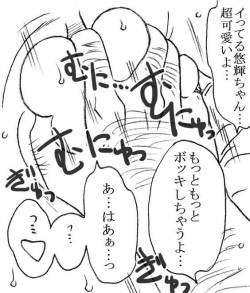 イッてる悠輝ちゃん…
超可愛いよ…
むに…
むに…
むにゅっ
むにゅっ
もっともっと
ボッキしちゃうよ…
ぎゅっ
あ…はあぁ…っ
ぎゅっ
…？
…？